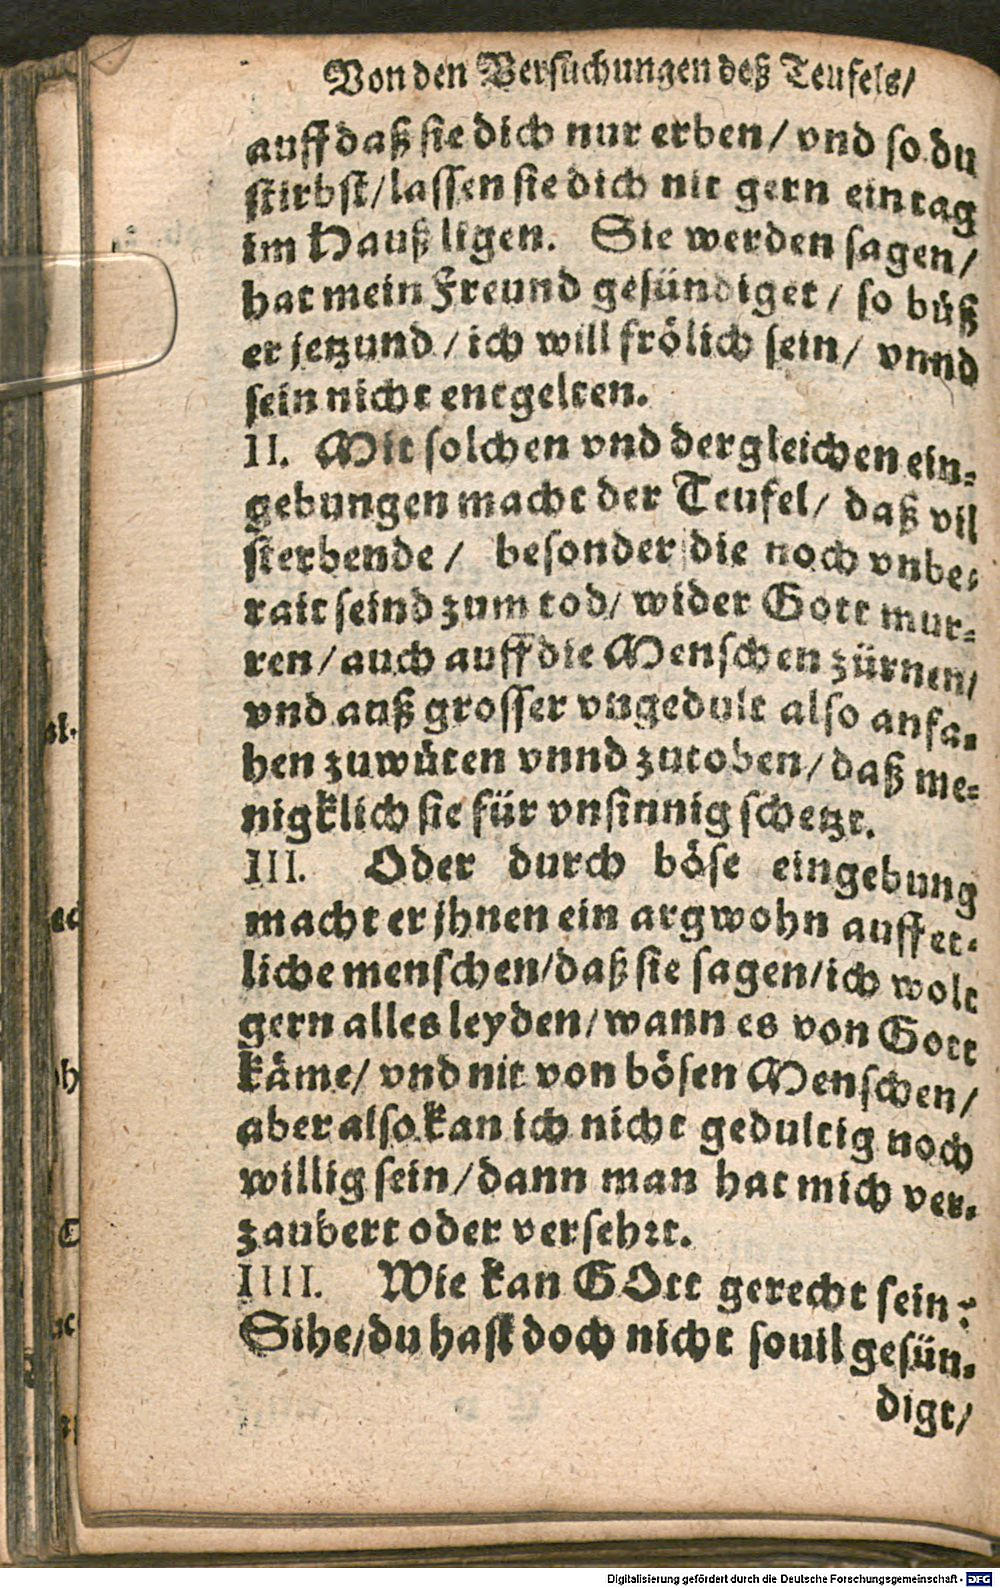 Von den Versuchungen deß Teufels/
auff daß sie dich nur erben/ vnd so du
stirbst/ lassen sie dich nit gern ein tag
im Hauß ligen. Sie werden sagen/
hat mein Freund gesündiget/ so büß
er jetzund/ ich will frölich sein/ vnnd
sein nicht entgelten.
II. Mit solchen vnd dergleichen ein-
gebungen macht der Teufel/ daß vil
sterbende/ besonder die noch vnbe-
rait seind zum tod/ wider Gott mur-
ren/ auch auff die Menschen zürnen/
vnd auß grosser vngedult also anfa-
hen zuwüten vnnd zutoben/ daß me-
nigklich sie für vnsinnig schetzt.
III. Oder durch böse eingebung
macht er jhnen ein argwohn auff et-
liche menschen/ daß sie sagen/ ich wolt
gern alles leyden/ wann es von Gott
käme/ vnd nit von bösen Menschen/
aber also kan ich nicht gedultig noch
willig sein/ dann man hat mich ver-
zaubert oder versehrt.
IIII. Wie kan GOtt gerecht sein?
Sihe/ du hast doch nicht souil gesün-
digt/
Digitalisierung gefördert durch die Deutsche Forschungsgemeinschaft - DFG